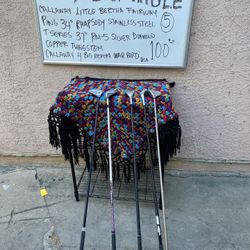 CALLAWAY LITTLE BERTHA FAIRWAY 5
PING 34" RHAPSODY STAINLESS STEEL
T SERIES 37" PM-5 SILVER DIAMOND
COPPER TUNGSTEN
CALLAWAY 4 BIG BERTHA WAR BIRD
100